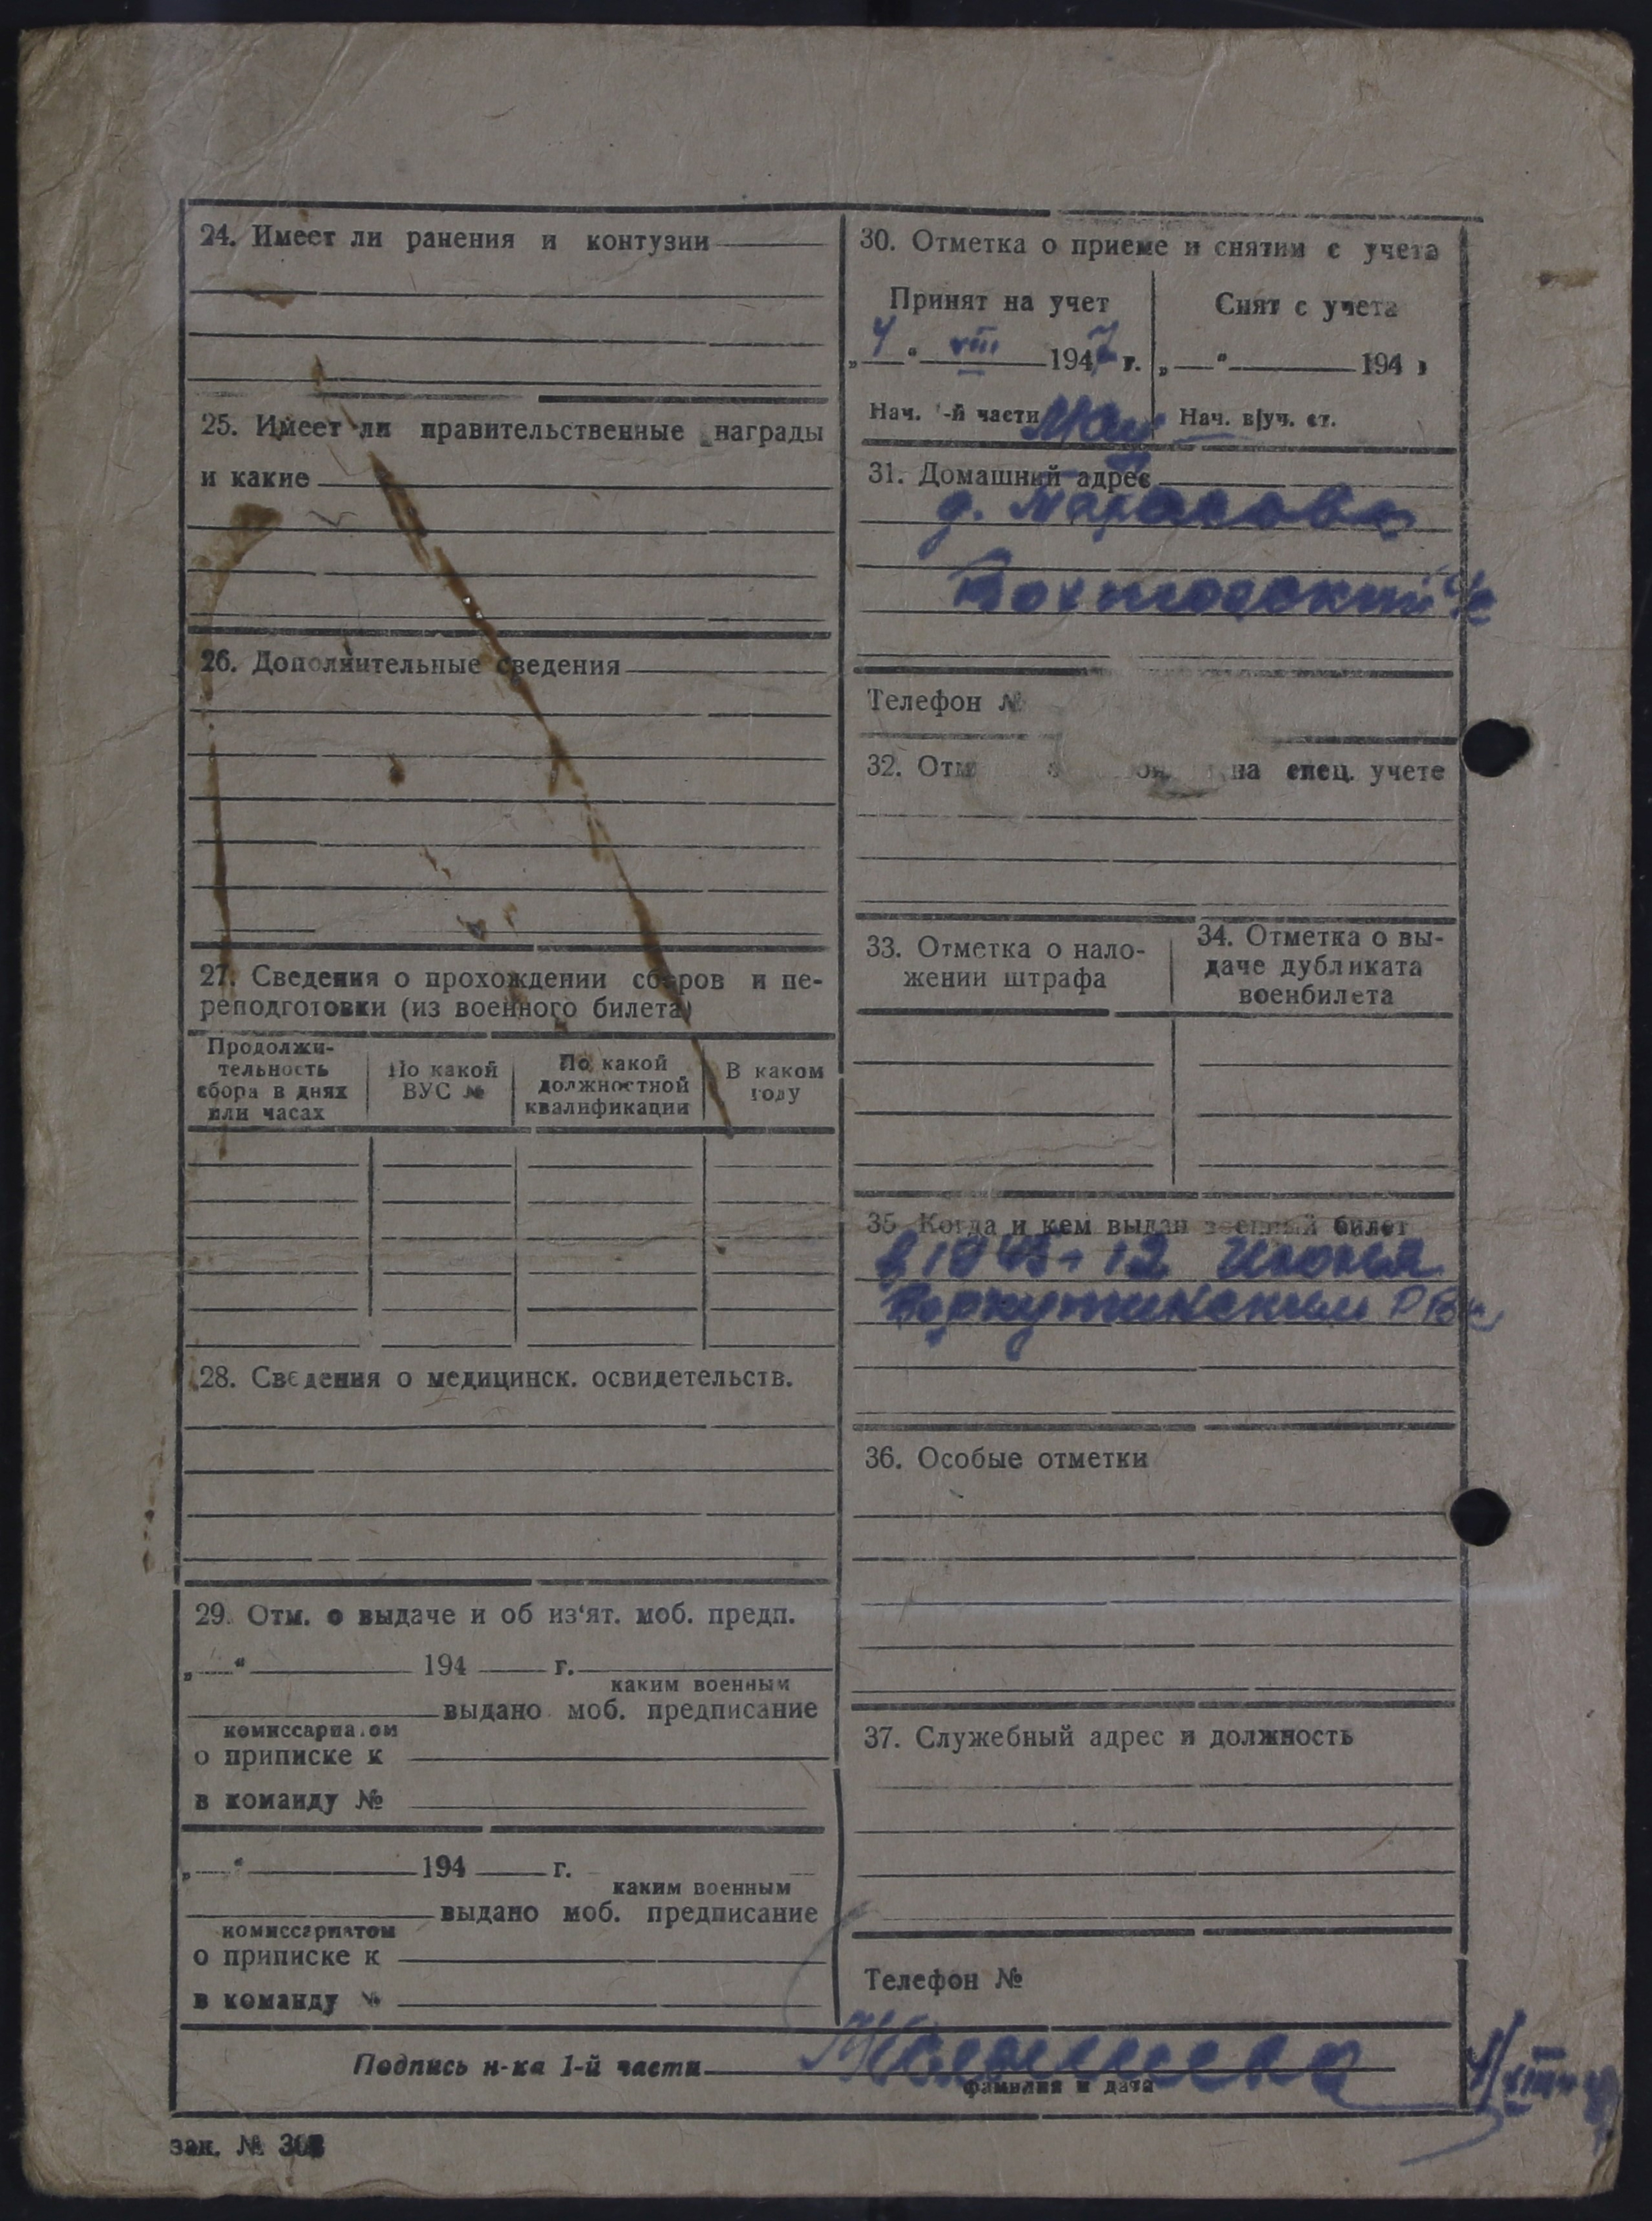 24. Имеет ли ранения и контузии
25. Имеет ли правительственные награды
и какие
26. Дополнительные сведения
27. Сведения о прохождении сборов и пе-
реподготовки (из военного билета)
Продолжи-
тельность
сбора в днях
или часах
По какой
ВУС №
По какой
должностной
квалификации
В каком
году
28. Сведения о медицинск. освидетельств.
29. Отм. о выдаче и об из'ят. моб. предп.
„ “ 194 г.
каким военным
выдано моб. предписание
комиссариатом
о приписке к
в команду №
„ “ 194 г.
каким военным
выдано моб. предписание
комиссариатом
о приписке к
в команду №
30. Отметка о приеме и снятии с учета
Принят на учет
„4“ VIII 1947 г.
Нач. 1-й части
Снят с учета
„ “ 194 г
Нач. в|уч. ст.
31. Домашний адрес
д.
Телефон №
32. на спец. учете
33. Отметка о нало-
жении штрафа
34. Отметка о вы-
даче дубликата
военбилета
35. Когда и кем выдан военный билет
в 1945 г 12 июня
Воркутинским РВК
36. Особые отметки
37. Служебный адрес и должность
Телефон №
Подпись н-ка 1-й части
фамилия и дата
зак. №